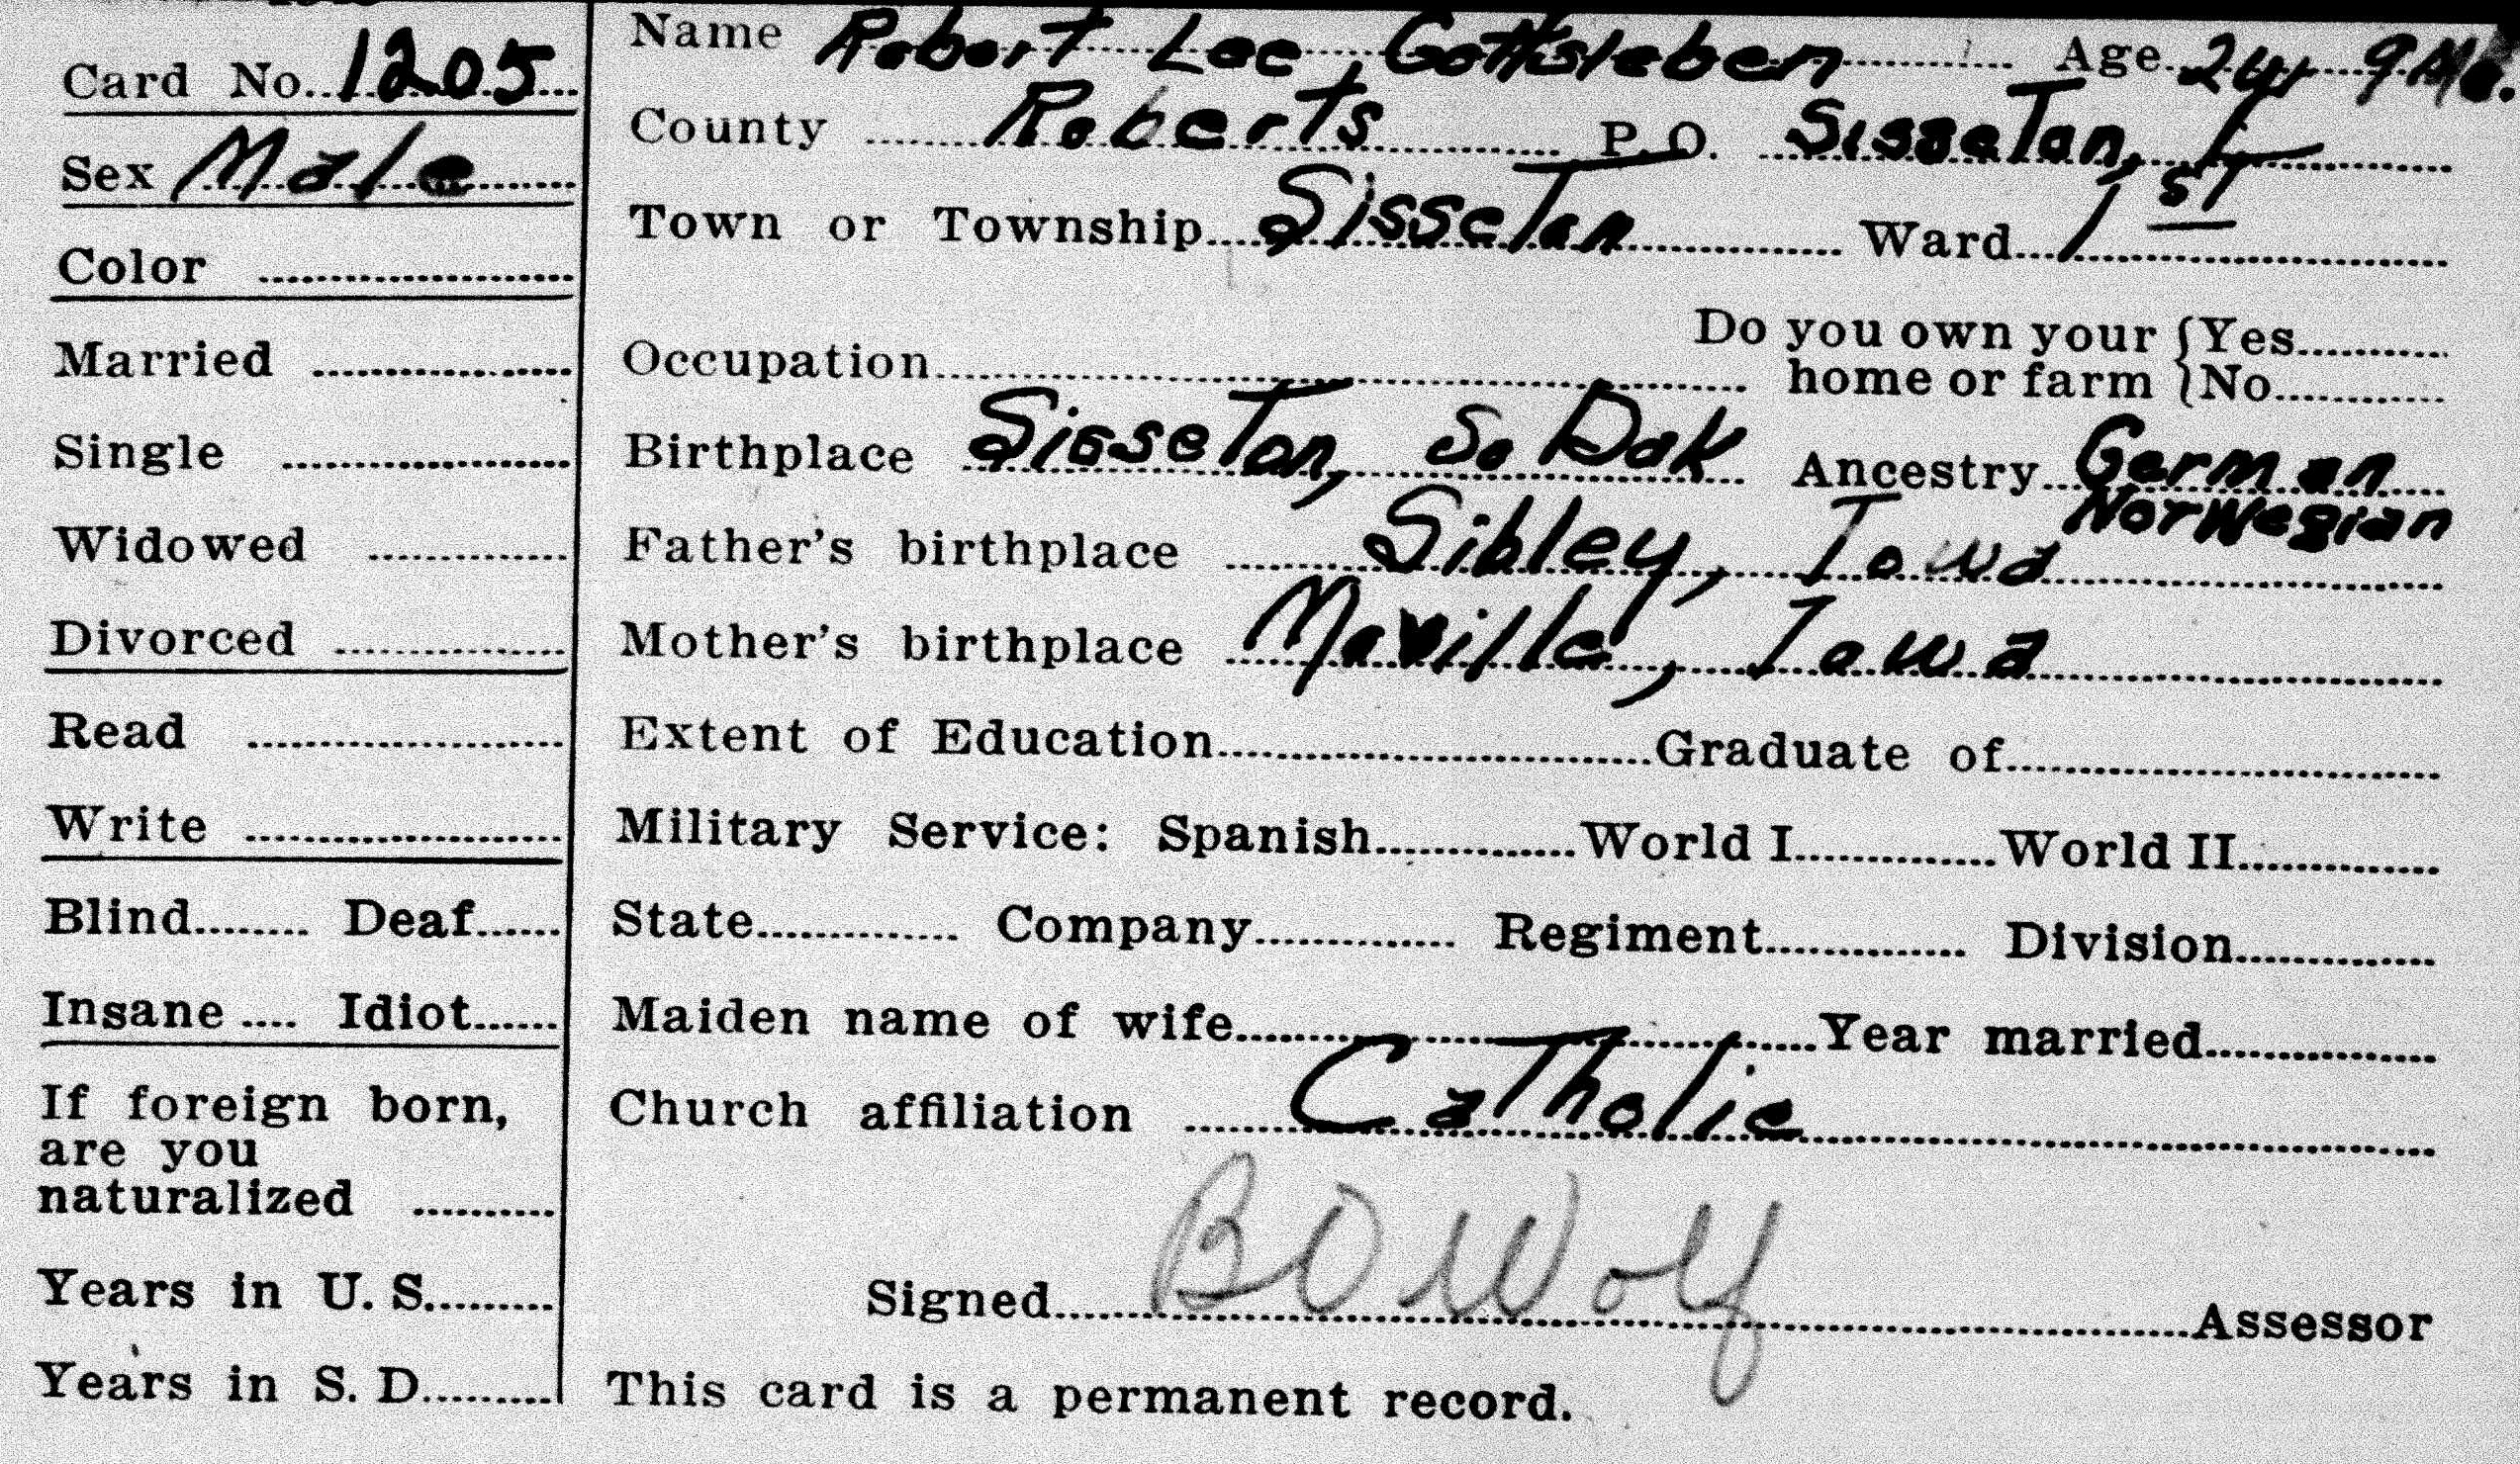 Card No. 1205
Sex Male
Color
Married
Single
Widowed
Divorced
Read
Write
Blind Deaf
Insane Idiot
If foreign born,
are you
naturalized
Years in U. S.
Years in S. D.
Name Robert Lee Gottsleben Age 2 yr 9 Mo.
County Roberts P. O. Sisseton,
Town or Township Sisseton Ward 1st
Occupation Do you own your home or farm { Yes
No
Birthplace Sisseton, So Dak Ancestry German
Norwegian
Father's birthplace Sibley, Iowa
Mother's birthplace Moville, Iowa
Extent of Education Graduate of
Military Service: Spanish World I World II
State Company Regiment Division
Maiden name of wife Year married
Church affiliation Catholic
Signed B O Wolf Assessor
This card is a permanent record.